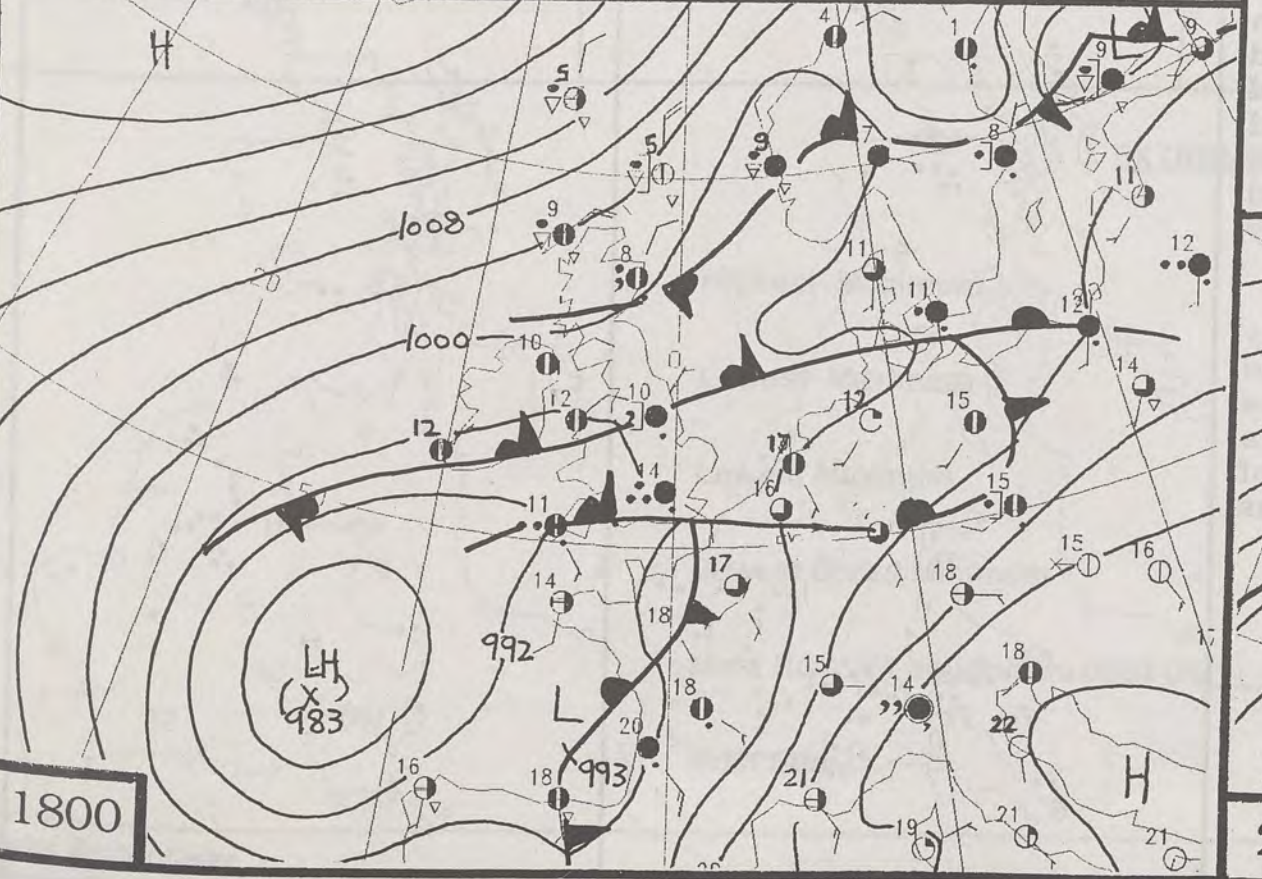 4
1
9
H
L
9
5
5
9
7
8
11
9
1008
8
12
20
11
11
12
1000
10
14
12
10
12
15
12
17
14
16
15
11
15
16
14
17
18
18
992
LH
(x)
983
L
15
14
18
18
22
20
x993
H
16
18
21
1800
19
21
21